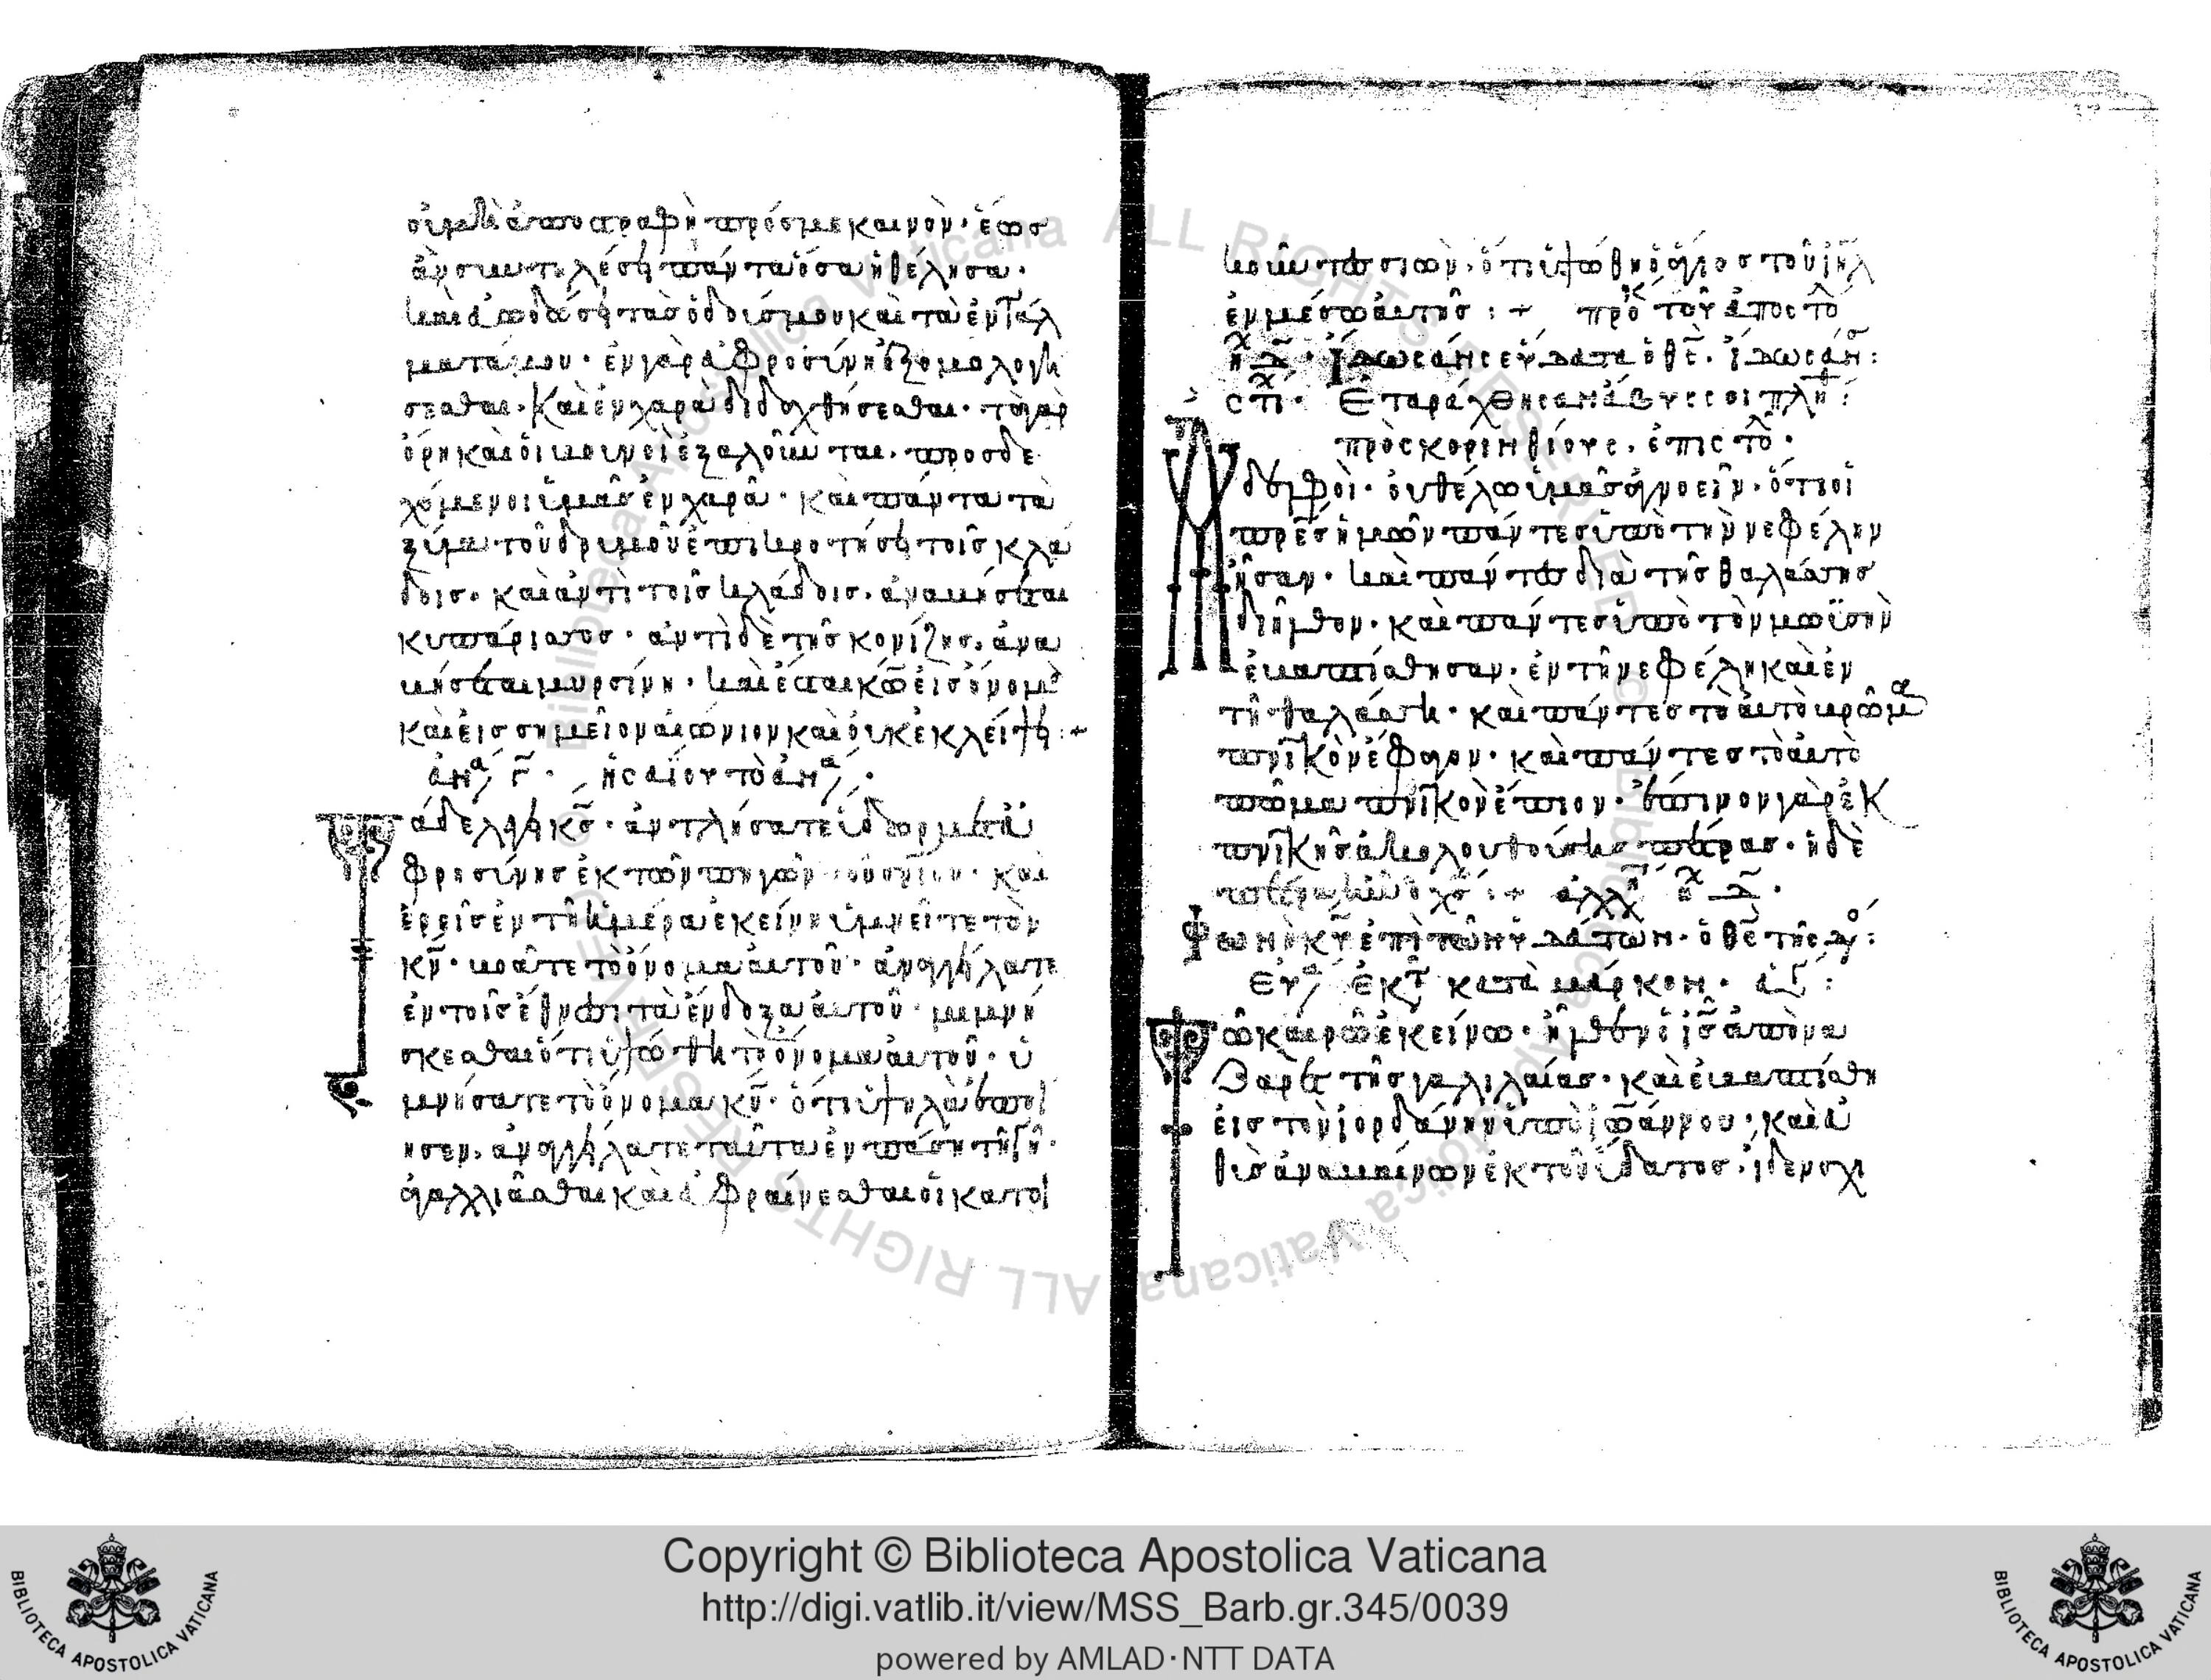 οὐ μὴ ἀποστραφῇ πρός με καινὸν· ἕως
ἂν συντελέσῃ πάντα ὅσα ἠθέλησα·
καὶ εὐοδώσῃ τὰς ὁδούς μου καὶ τὰ ἐντάλ
ματά μου· ἐν γὰρ εὐφροσύνῃ ἐξομολογή
σεσθαι· καὶ ἐν χαρᾷ διδαχθήσεσθαι· τὰ γὰρ
ὄρη καὶ οἱ βουνοὶ ἐξαλοῦνται· προσδε
χόμενοι ὑμᾶς ἐν χαρᾷ· καὶ πάντα τὰ
ξύλα τοῦ δρυμοῦ ἐπικροτήσει τοῖς κλά
δοις· καὶ ἀντὶ τοῖς κλάδοις· ἀναβήσεται
κυπάρισσος· ἀντὶ δὲ τῆς κονίζης· ἀνα
βήσεται μυρσίνη· καὶ ἔσται κω εἰς ὄνομα
καὶ εἰς σημεῖον αἰώνιον καὶ οὐκ ἐκλείψει :+
ἀνα γ· ἡσαΐου τὸ ἀνα·
Τάδε λέγει κς· ἀντλήσατε ὕδωρ μετ' εὐ
φροσύνης ἐκ τῶν πηγῶν τοῦ σωτηρίου· καὶ
ἐρεῖς ἐν τῇ ἡμέρᾳ ἐκείνῃ ὑμνεῖτε τὸν
κν· βοᾶτε τὸ ὄνομα αὐτοῦ· ἀναγγείλατε
ἐν τοῖς ἔθνεσι τὰ ἔνδοξα αὐτοῦ· μιμνή
σκεσθαι ὅτι ὑψώθη τὸ ὄνομα αὐτοῦ· ὑ
μνήσατε τὸ ὄνομα κυ· ὅτι ὑψηλὰ ἐποί
ησεν· ἀναγγείλατε ταῦτα ἐν πάσῃ τῇ γῇ·
ἀγαλλιᾶσθαι καὶ εὐφραίνεσθαι οἱ κατοι
κοῦντες σιών· ὅτι ὑψώθη ὁ ἅγιος τοῦ ιηλ
ἐν μέσῳ αὐτῆς :+ προκ τοῦ ἀποστό
ηχ δ· Ἴδωσάν σε ὕδατα ὁ θς· ἴδωσάν :
στι· Ἐταράχθησαν ἄβυσσοι πλη :
πρὸς κορινθίους· ἐπιστο·
Ἀδελφοὶ· οὐ θέλω ὑμᾶς ἀγνοεῖν· ὅτι οἱ
πρες ἡμῶν πάντες ὑπὸ τὴν νεφέλην
ἦσαν· καὶ πάντες διὰ τῆς θαλάσσης
διῆλθον· καὶ πάντες ὑπὸ τὸν μωϋσὴν
ἐβαπτίσθησαν· ἐν τῇ νεφέλῃ καὶ ἐν
τῇ θαλάσσῃ· καὶ πάντες τὸ αὐτὸ βρῶμα
πνικὸν ἔφαγον· καὶ πάντες τὸ αὐτὸ
πόμα πνικὸν ἔπιον· ἔπινον γὰρ ἐκ
πνικῆς ἀκολουθούσης πέτρας· ἡ δὲ
πέτρα ἦν ὁ χς :+ ἀλλη ηχ δ·
Φωνὴ κυ ἐπὶ τῶν ὑδάτων· ὁ θς τῆς δο :
Ευα ἐκτ κατὰ μάρκον·
Τῶ καιρῶ ἐκείνω· ἦλθεν ὁ ις ἀπὸ να
ζαρὲτ τῆς γαλιλαίας· καὶ ἐβαπτίσθη
εἰς τὸν ἰορδάνην ὑπὸ ἰωάννου· καὶ εὐ
θὺς ἀναβαίνων ἐκ τοῦ ὕδατος· ἴδεν σχι
Copyright © Biblioteca Apostolica Vaticana
http://digi.vatlib.it/view/MSS_Barb.gr.345/0039
powered by AMLAD·NTT DATA
BIBLIOTECA APOSTOLICA VATICANA
BIBLIOTECA APOSTOLICA VATICANA